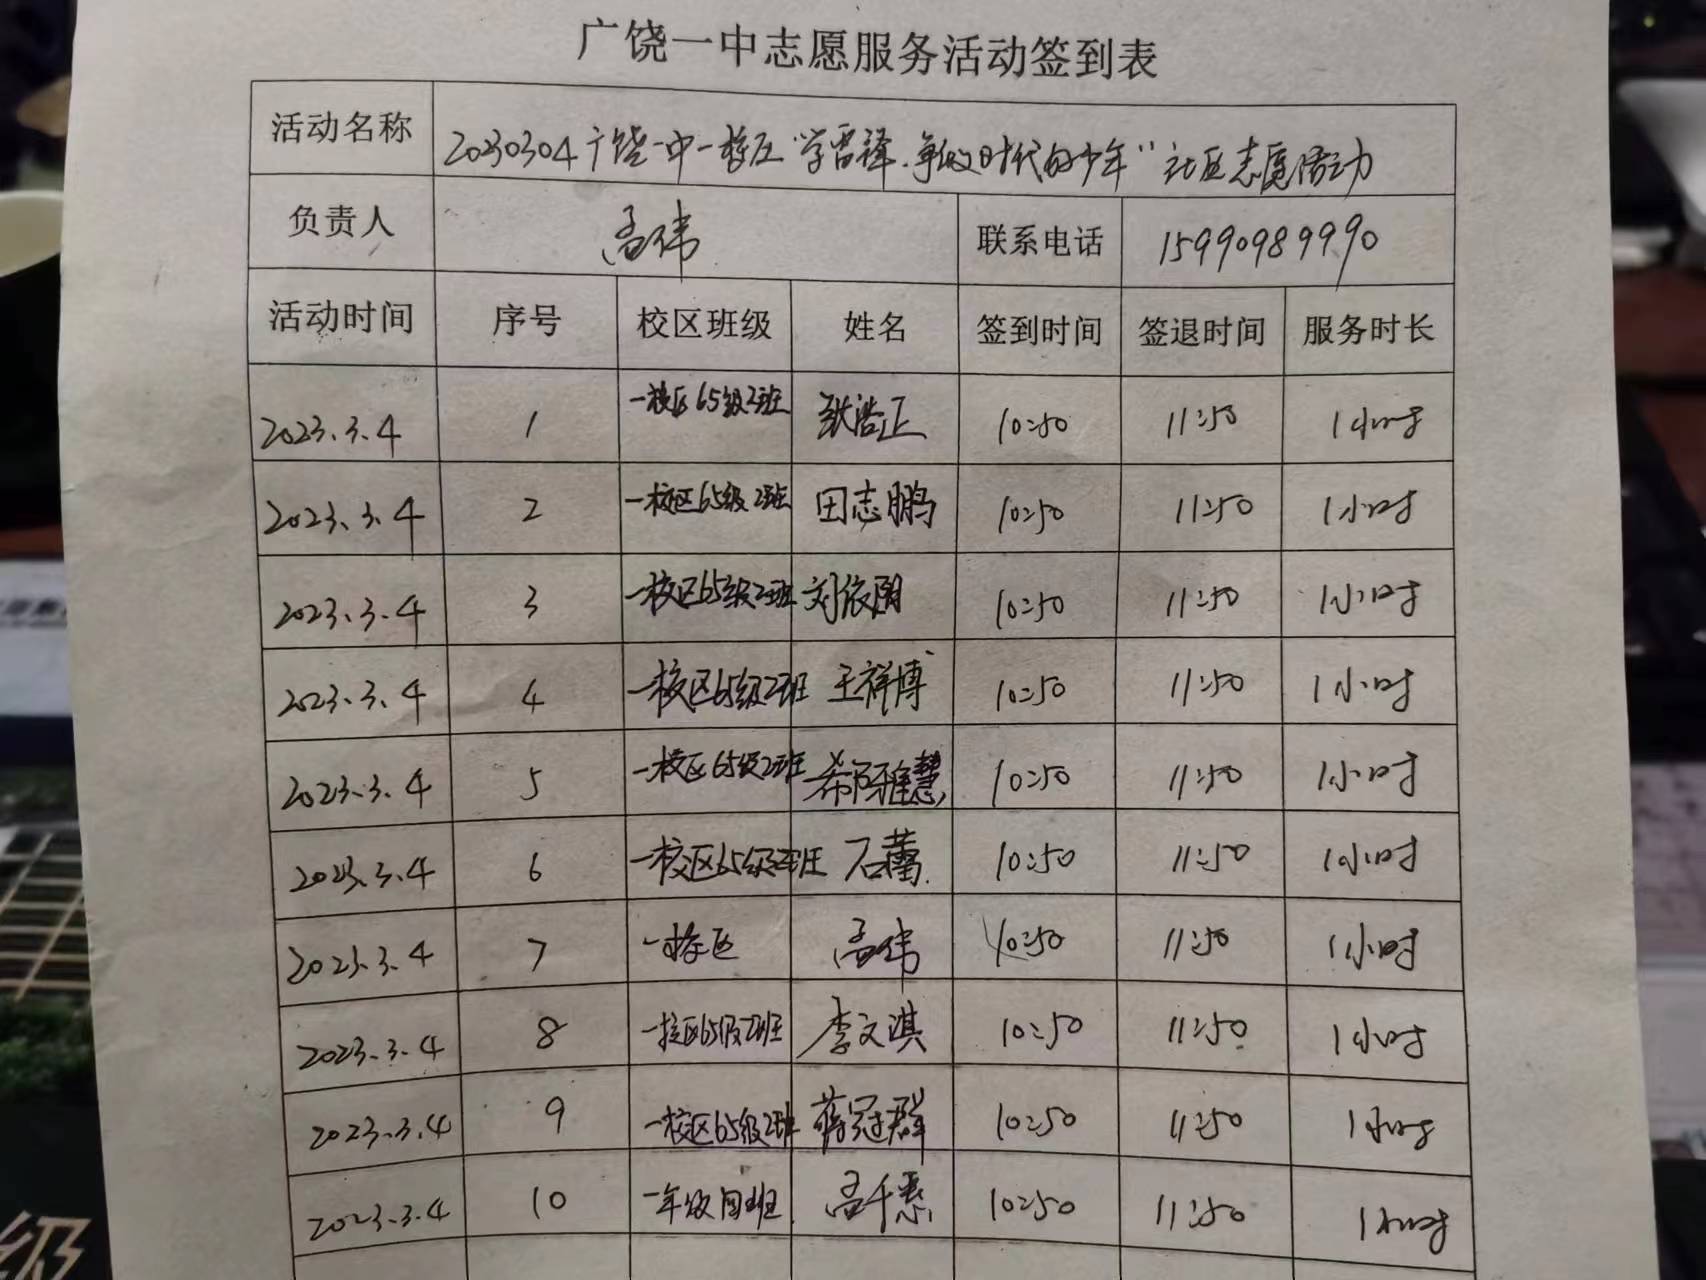 广饶一中志愿服务活动签到表
活动名称 20230304广饶一中一校区"学雷锋.争做时代好少年"社区志愿活动
负责人 孟伟 联系电话 15990989990
活动时间 序号 校区班级 姓名 签到时间 签退时间 服务时长
2023.3.4 1 一校区65级2班 耿浩正 10:50 11:50 1小时
2023.3.4 2 一校区65级2班 田志鹏 10:50 11:50 1小时
2023.3.4 3 一校区65级2班 刘依阳 10:50 11:50 1小时
2023.3.4 4 一校区65级2班 王祥博 10:50 11:50 1小时
2023.3.4 5 一校区65级2班 10:50 11:50 1小时
2023.3.4 6 一校区65级2班 石蕾 10:50 11:50 1小时
2023.3.4 7 一校区 孟伟 10:50 11:50 1小时
2023.3.4 8 一校区65级2班 李文淇 10:50 11:50 1小时
2023.3.4 9 一校区65级2班 蒋冠群 10:50 11:50 1小时
2023.3.4 10 一年级四班 孟千惠 10:50 11:50 1小时
级